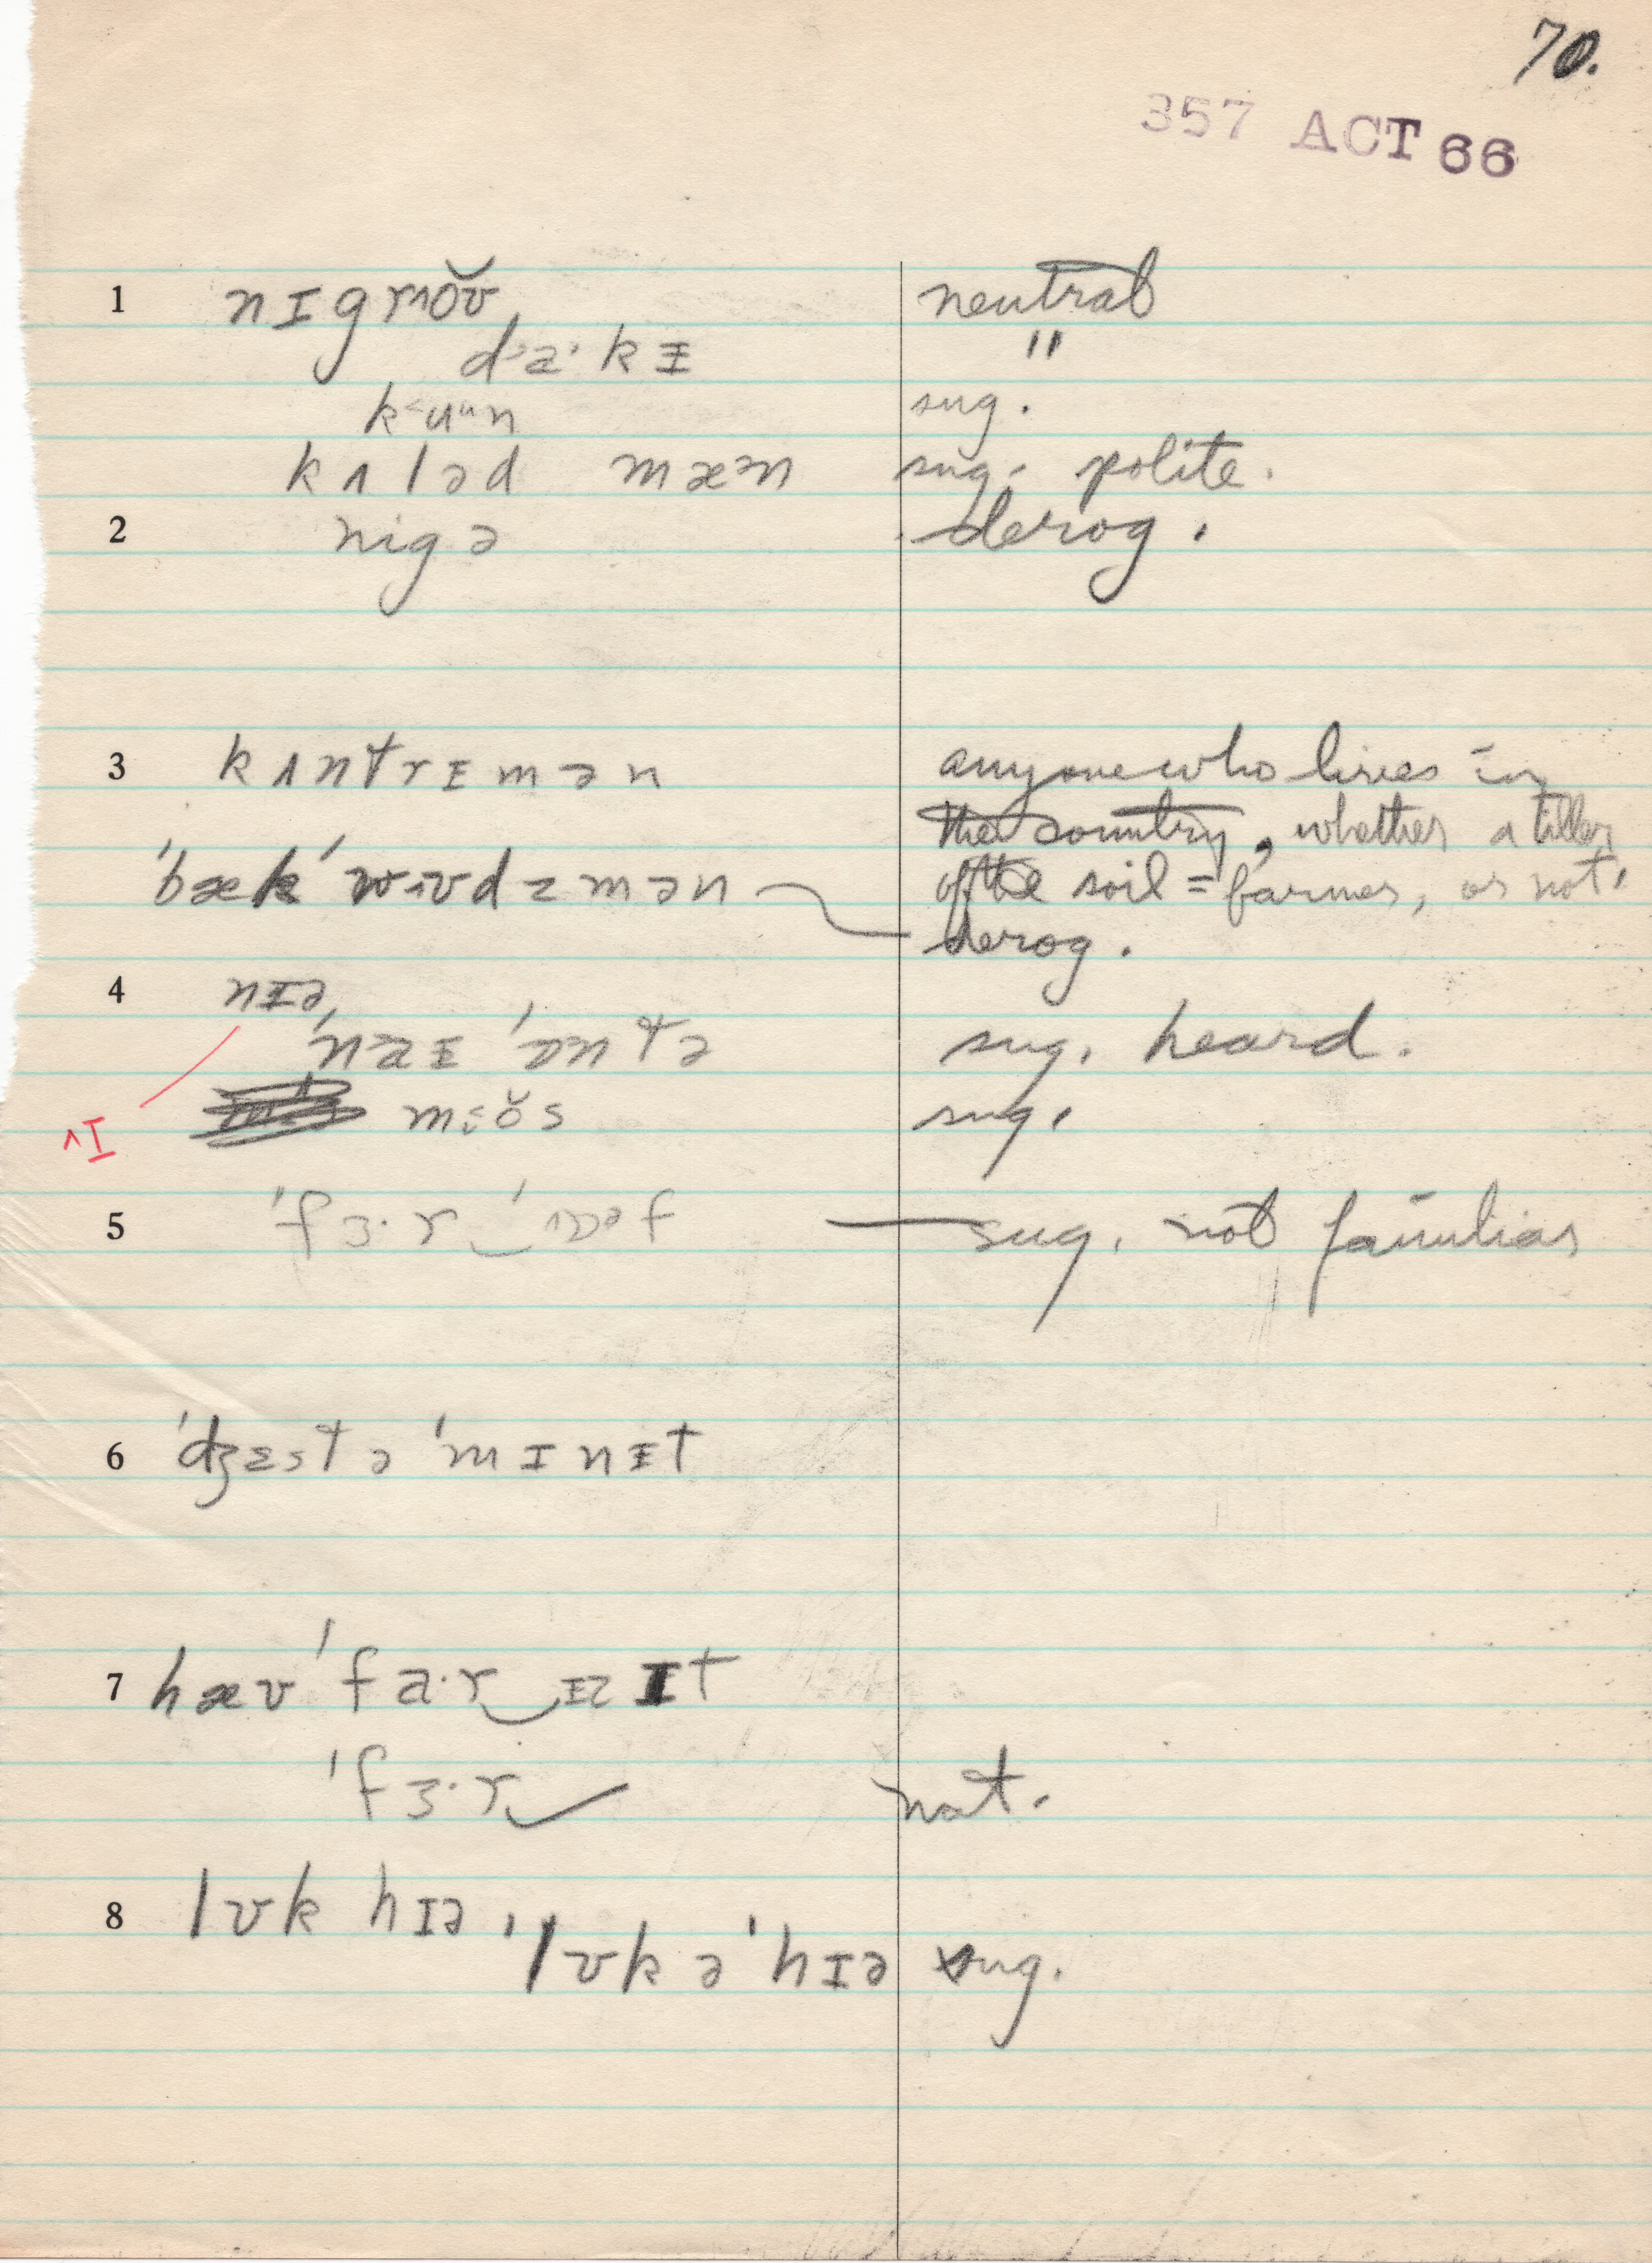 70.
357 ACT 66
1 nɪgrˈoʊ̆ neutral
d·a·kɨ "
k<uᵘn sug.
kʌləd mæᵊn sug. polite.
2 nigə derog.
3 kʌntrɪmən anyone who lives in
the country, whether a tiller
ˈbækˈwʊdzmən of the soil = farmer, or not.
derog.
4 nɪə
ˈnaɨˈɒntə sug. heard.
^I
sug.
5 ˈfɜ·r‿ˈɒəf sug. not familiar
6 ˈdʒɛst əˈmɪnɨt
7 hævˈfa·r‿ɪz ɪt
ˈfɜ·r‿ nat.
8 lʊk hɪə, ˈlʊkəˈhɪə sug.